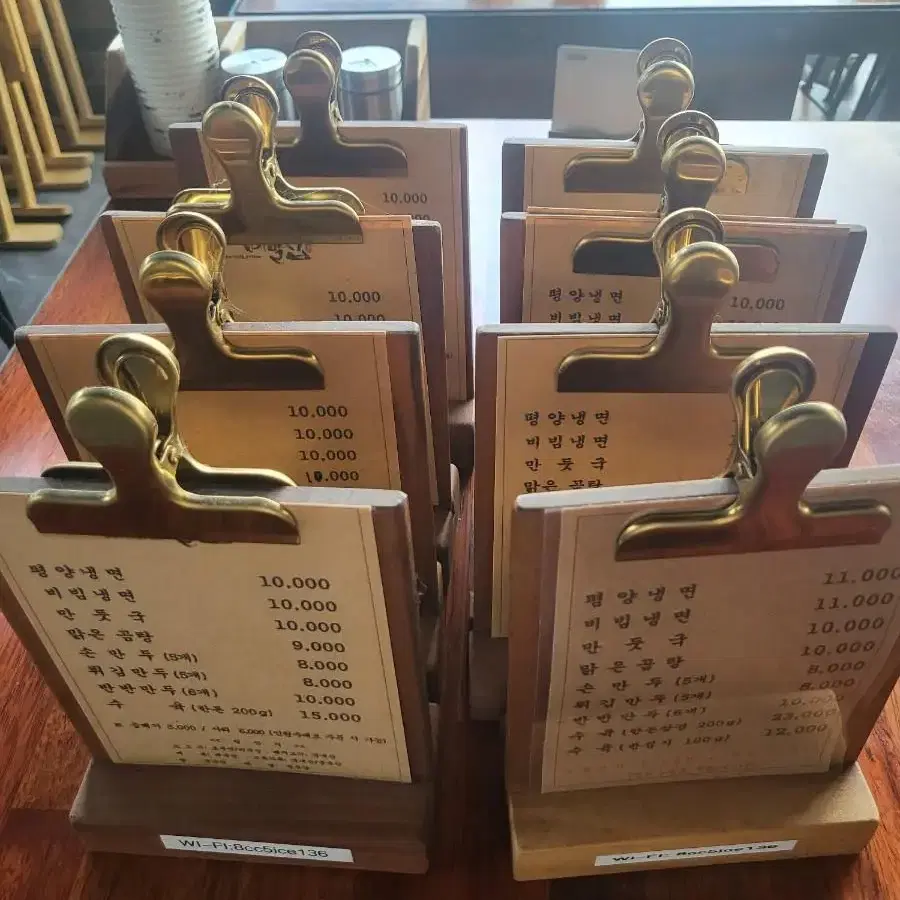 10,000
10,000
10,000
평양냉면 10,000
비빔냉면
10,000
10,000
10,000
10,000
평양냉면
비빔냉면
만둣국
맑은 곰탕
평양냉면 10,000
비빔냉면 10,000
만둣국 10,000
맑은 곰탕 9,000
손만두 (5개) 8,000
튀김만두 (5개) 8,000
반반만두 (6개) 10,000
수육 (한돈 200g) 15,000
WI-FI:8cc5ice136
평양냉면 11,000
비빔냉면 11,000
만둣국 10,000
맑은곰탕 10,000
손만두 (5개) 8,000
튀김만두 (5개) 8,000
반반만두 (6개) 10,000
수육 (한돈삼겹 200g) 23,000
수육 (반접시 100g) 12,000
WI-FI: 8cc5ice136